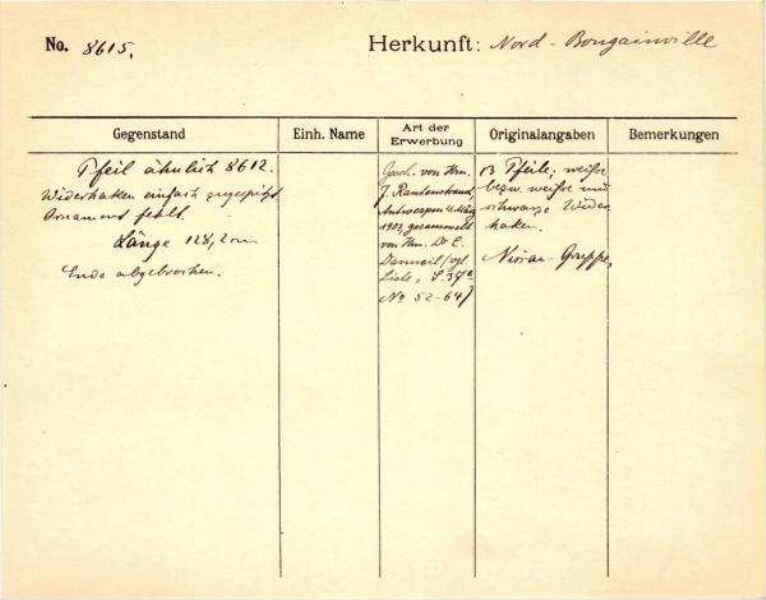 No. 8615.
Herkunft: Nord-Bougainville
Gegenstand
Einh. Name
Art der Erwerbung
Originalangaben
Bemerkungen
Pfeil ähnlich 8612.
Widerhaken einfach zugespitzt
Ornament fehlt.
Länge 128,2 cm.
Ende abgebrochen.
Gesch. von Hrn.
J. 
Antwerpen März
1903, gesammelt
von Hrn. Dr. E.
(vgl
Liste, S.
No 52-64)
13 Pfeile; weiße
bezw. weiße und
schwarze Wider
haken.
Nissan-Gruppe,